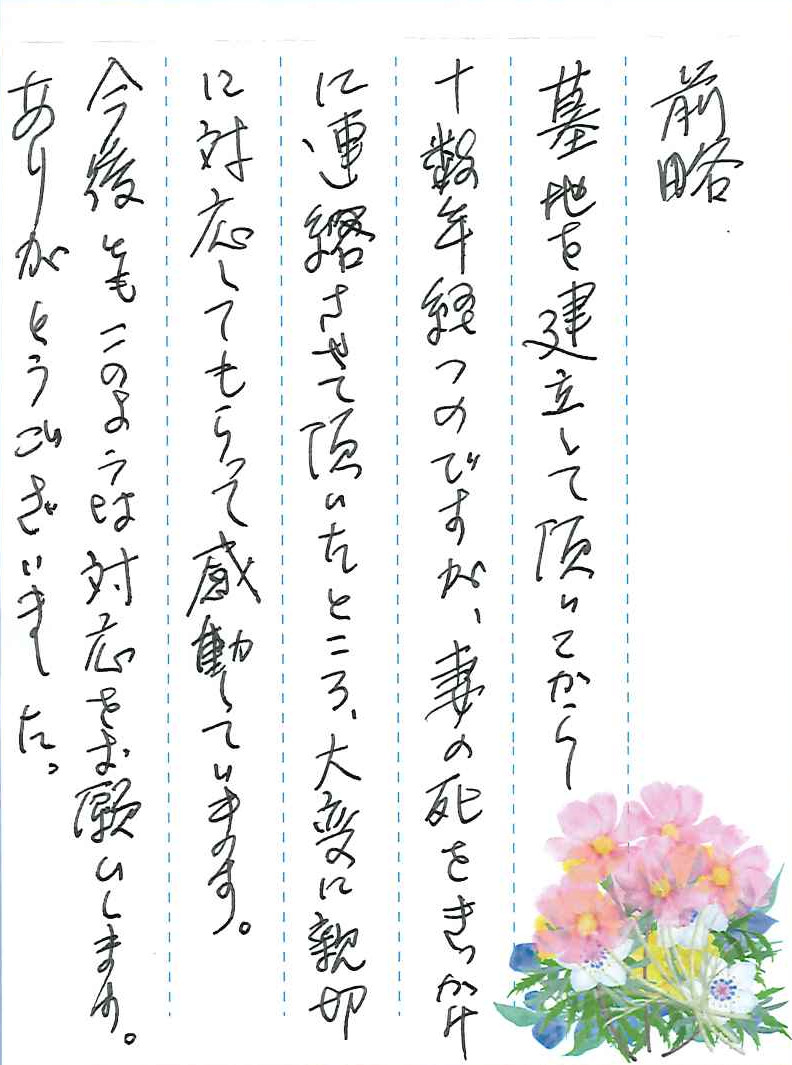 前略
墓地を建立して頂いてから
十数年経つのですが、妻の死をきっかけ
に連絡させて頂いたところ、大変に親切
に対応してもらって感動しています。
今後ともこのような対応をお願いします。
ありがとうございました。